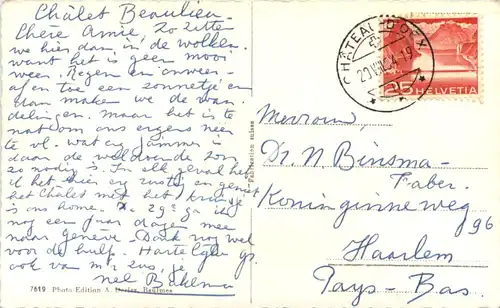 Châlet Beaulieu.
Chère Amie, Zo zitten
we hier dan in de wolken
want het is geen mooi
weer. Regen en onweer -
af en toe een zonnetje en
dan maken we de wan-
delingen. maar het is te
nat om ons ergens neer
te vl. wat erg jammer is
daar de weldoende zon
zo nodig is. In elk geval heb
it het hier erg rustig en geniet
het Châlet met het
is ons home. De 29e ga ik
nog een paar dagen mee
naar Genève. Dank nog wel
voor de hulp. Hartelijke gr.
ook van m'r zus, je
nel
7619 Photo-Edition A. Deriaz, Baulmes
Fabrication suisse
CHÂTEAU-D'OEX
25 HELVETIA
Mevrouw
Dr. N. Binsma-
Faber.
Koninginneweg 96
Haarlem
Pays-Bas.